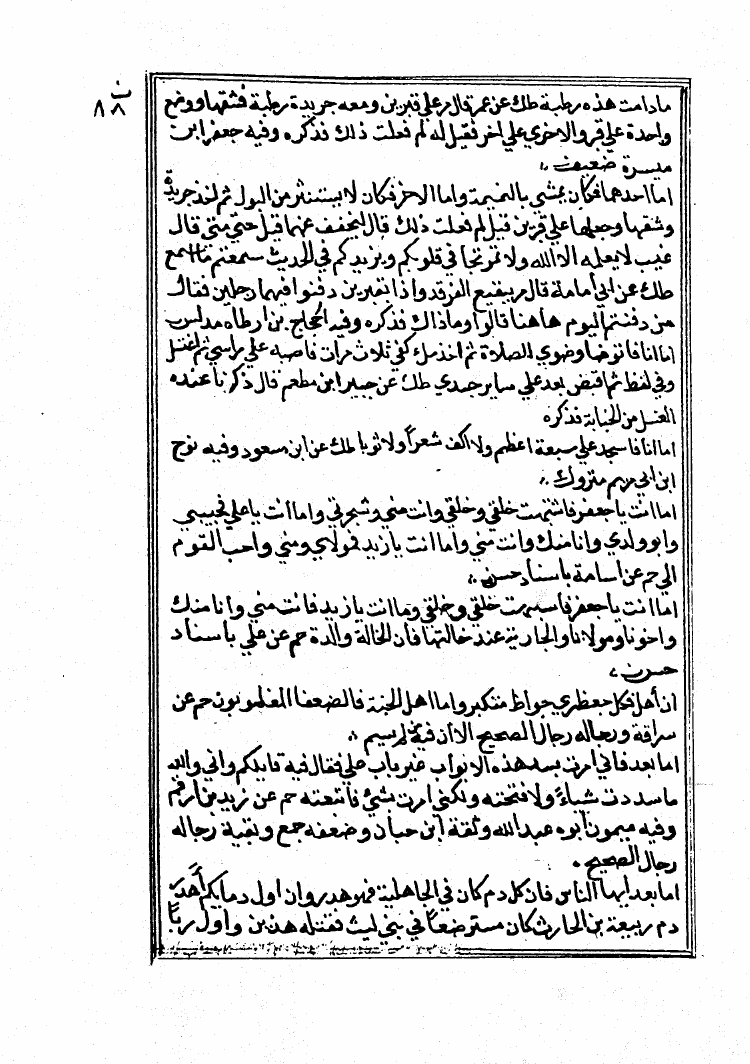 ن
٨٨
مادامت هذه رطبة طك عن عمر قال مر علي قبرين ومعه جريدة رطبة فشقها ووضع
واحدة علي قبر والاخري علي اخر فقيل له لم فعلت ذلك فذكره وفيه جعفر ابن
ميسرة ضعيف
اما احدهما فكان يمشي بالنميمة واما الاخر فكان لا يستنثر من البول ثم اخذ جريدة
وشقها وجعلها علي قبرين قيل لم فعلت ذلك قال ليخفف عنهما قيل حتي متي قال
غيب لا يعلمه الا الله ولا تمرغ في قلوبكم وتزيدكم في الحديث سمعتم ما اسمع
طك عن ابي امامة قال مر ببقيع الغرقد واذا بقبرين دفنوا فيهما رجلين فقال
من دفنتم اليوم هاهنا قالوا وماذاك فذكره وفيه الحجاج بن ارطاه مدلس
اما انا فاتوضا وضوي الصلاة ثم اخذ ملء كفي ثلاث مرات فاصبه علي راسي ثم اغتسل
وفي لفظ ثم افيض بعد علي ساير جسدي طك عن جبير ابن مطعم قال ذكرنا عنده
الغسل من الجنابة فذكره
اما انا فاسجد علي سبعة اعظم ولا اكف شعراً ولا ثوبا طك عن ابن مسعود وفيه نوح
ابن ابي مريم متروك
اما انت يا جعفر فاشبهت خلقي وخلقي وانت مني وشجرتي واما انت يا علي فحبيبي
وابو ولدي وانا منك وانت مني واما انت يا زيد فمولاي ومني واحب القوم
الي حم عن اسامة باسناد حسن
اما انت يا جعفر فاشبهت خلقي وخلقي وما انت يا زيد فانت مني وانا منك
واخونا ومولانا والجارية عند خالتها فان الخالة والدة حم عن علي باسناد
حسن
ان أهل فكل جعظري جواظ متكبر واما اهل الجنة فالضعفا المغلوبون حم عن
سراقة ورجاله رجال الصحيح الا أن فيه لم يسم
اما بعد فاني امرت بسد هذه الابواب غير باب علي فقال فيه قايلكم واني والله
ما سددت شياءً ولا فتحته ولكني امرت بشي فاتبعته حم عن زيد بن ارقم
وفيه ميمون ابوه عبد الله وثقة ابن حبان وضعفه جمع وبقية رجاله
رجال الصحيح
اما بعد ايها الناس فان كل دم كان في الجاهلية فهو هدر وان اول دمايكم أهدر
دم ربيعة بن الحارث كان مسترضعاً في بني ليث فقتله هذين واول رباً